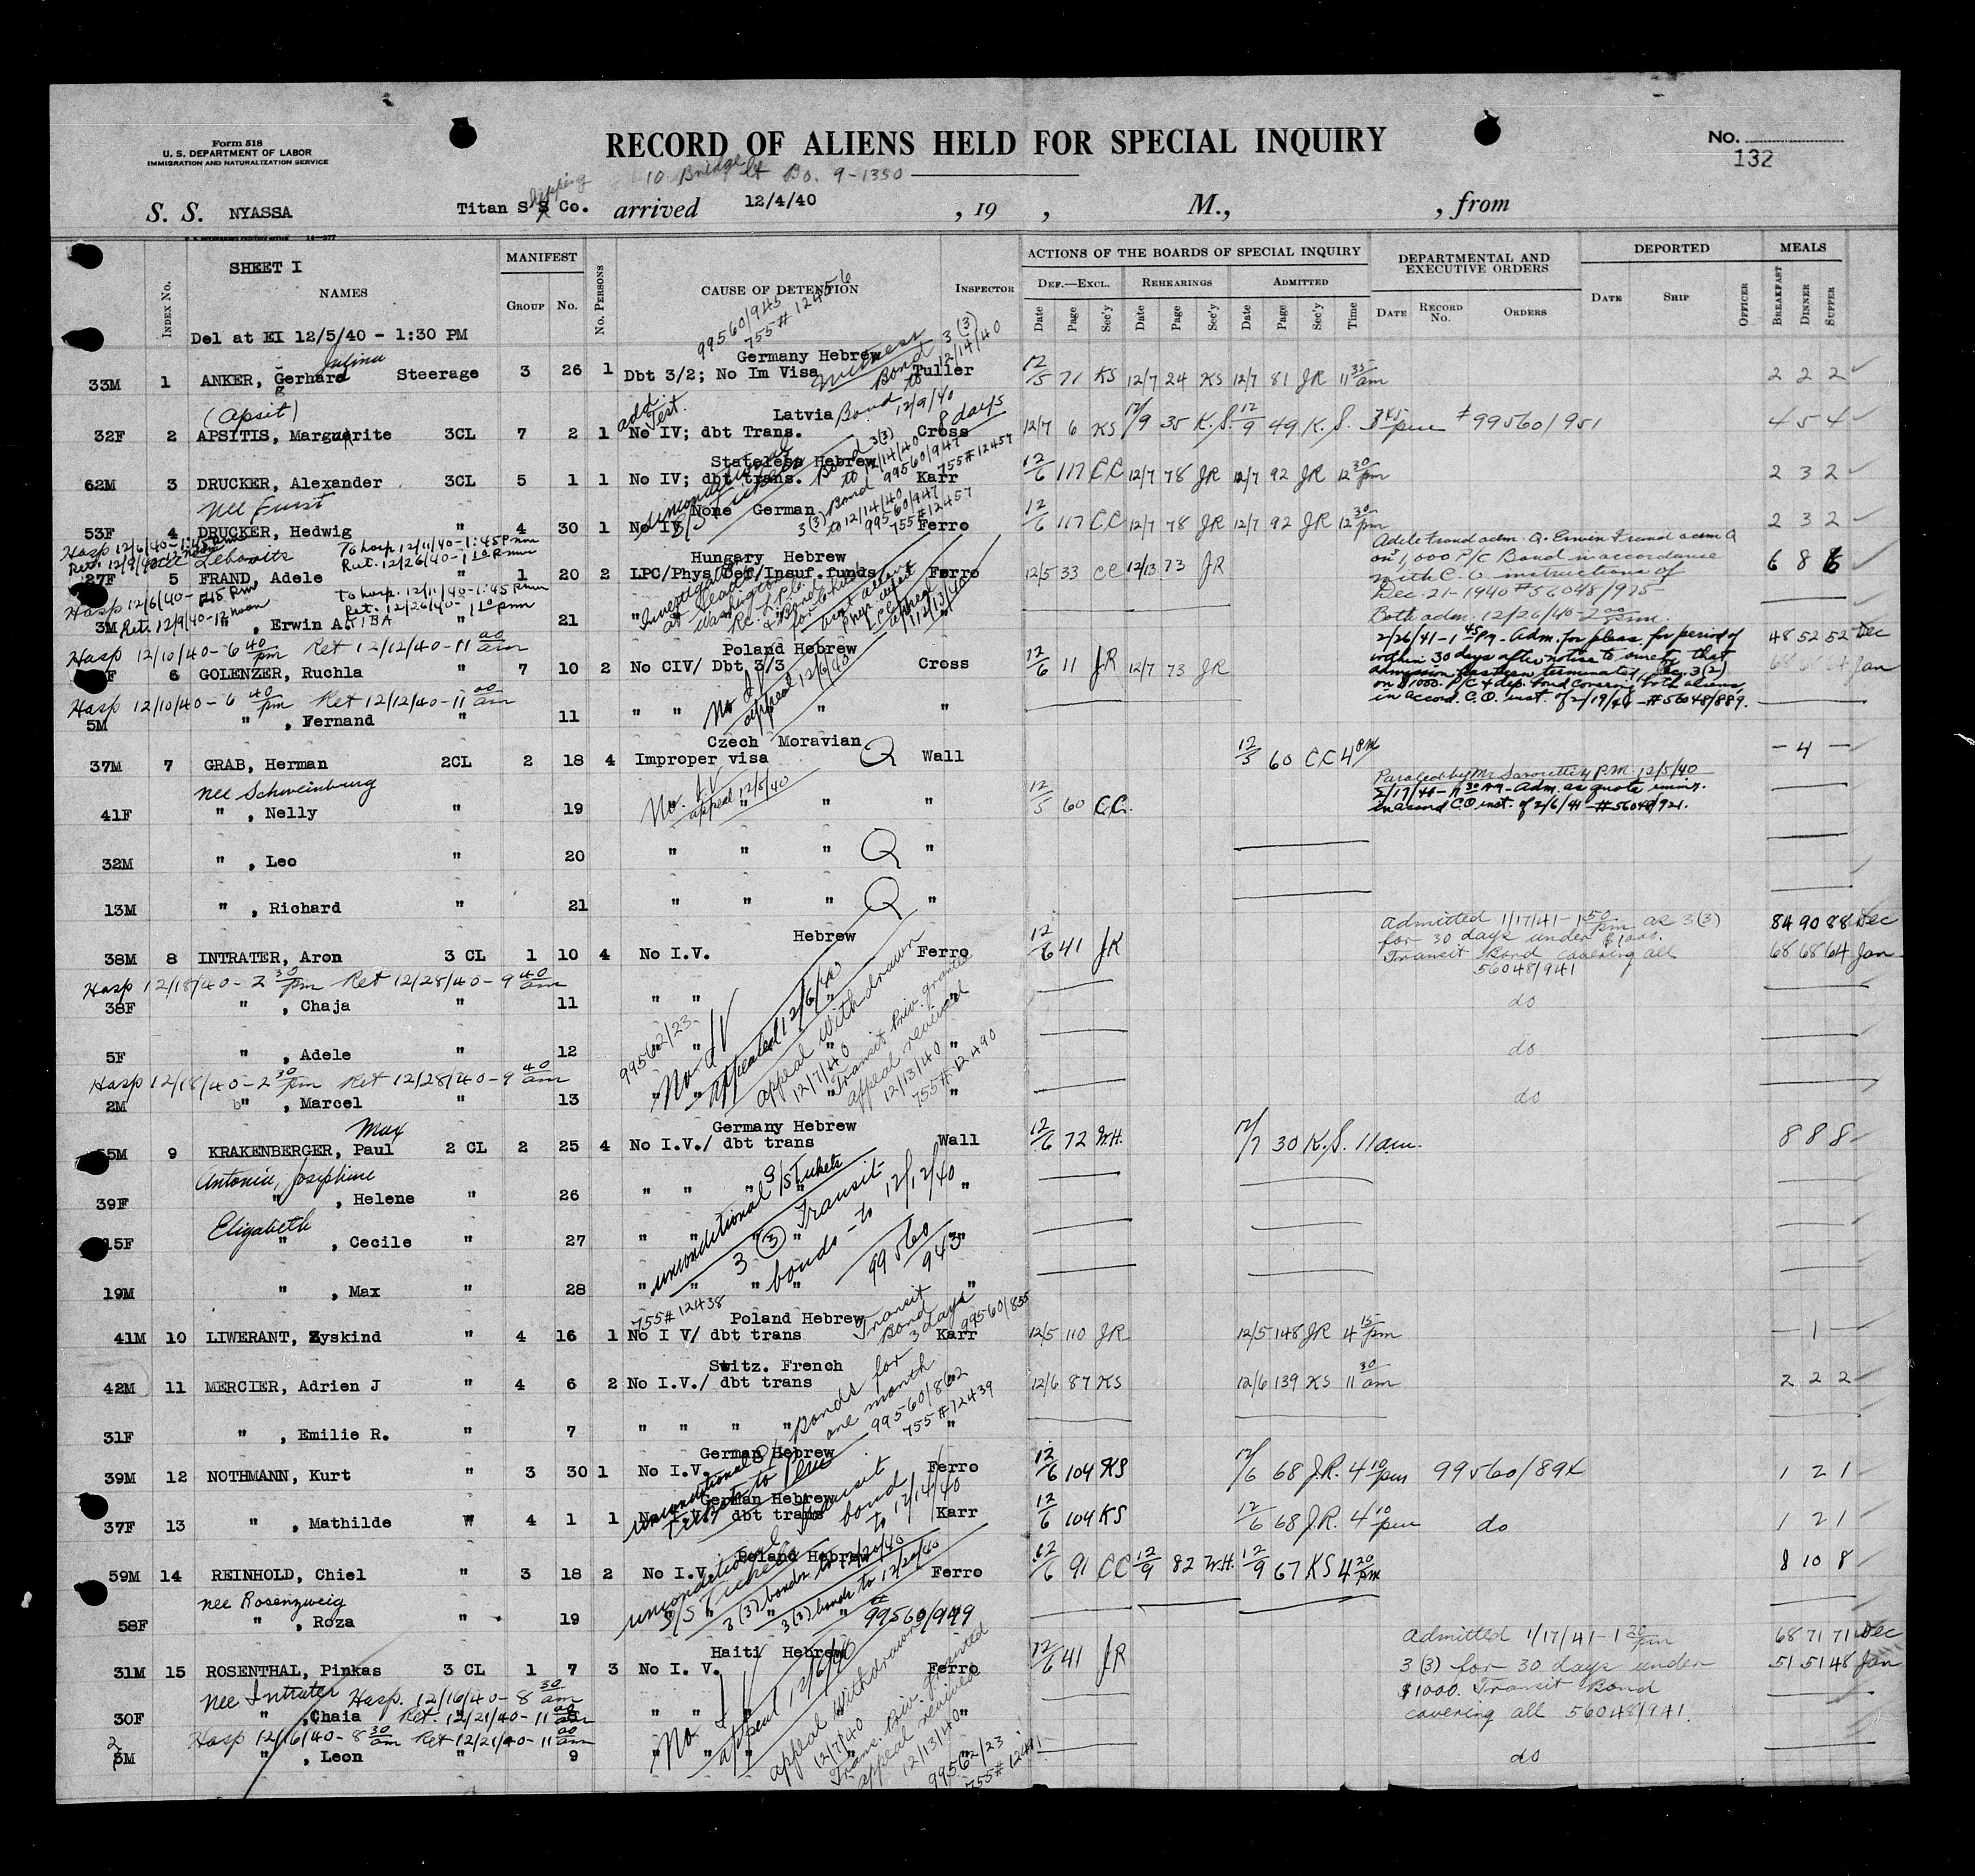 Form 518
U. S. DEPARTMENT OF LABOR
IMMIGRATION AND NATURALIZATION SERVICE
RECORD OF ALIENS HELD FOR SPECIAL INQUIRY
No.
132
10 Bridge St Bo. 9-1350
S. S. NYASSA Titan S S Co. arrived 12/4/40, 19 , M., , from
SHEET I
Index No. NAMES MANIFEST Group No. No. Persons CAUSE OF DETENTION Inspector
ACTIONS OF THE BOARDS OF SPECIAL INQUIRY
Def.—Excl. Rehearings Admitted
Date Page Sec'y Date Page Sec'y Date Page Sec'y Time
DEPARTMENTAL AND EXECUTIVE ORDERS
Date Record No. Orders
DEPORTED
Date Ship Officer
MEALS
Breakfast Dinner Supper
Del at EI 12/5/40 - 1:30 PM
99560/945
755# 12456
Germany Hebrew
33M 1 ANKER, Gerhard Steerage 3 26 1 Dbt 3/2; No Im Visa Tuller 12/5 71 KS 12/7 24 KS 12/7 81 JR 11 35 am 2 2 2
Witness Bond 3(3) to 12/14/40
(Apsit)
add. Test.
Latvia Bond to 12/9/40 8 days
32F 2 APSITIS, Marguerite 3CL 7 2 1 No IV; dbt Trans. Cross 12/7 6 KS 12/9 35 K.S. 12/9 49 K.S. 3 45 pm #99560/951 4 5 4
Stateless Hebrew
62M 3 DRUCKER, Alexander 3CL 5 1 1 No IV; dbt trans. Karr 12/6 117 CC 12/7 78 JR 12/7 92 JR 12 30 pm 2 3 2
unconditional S/S Tickets Bond 3(3) to 12/14/40 99560/947 755#12457
nee Furst
None German
53F 4 DRUCKER, Hedwig " 4 30 1 No IV Ferro 12/6 117 CC 12/7 78 JR 12/7 92 JR 12 30 pm 2 3 2
3(3) Bond to 12/14/40 99560/947 755#12457
Hosp 12/6/40 - 1:45 P
Ret. 12/9/40 nee Lebovits
To hosp. 12/11/40 - 1:45 P mm
Ret. 12/26/40 - 1 10 P mm
Hungary Hebrew
27F 5 FRAND, Adele " 1 20 2 LPC/Phys Def/Insuf.funds Ferro 12/5 33 CC 12/13 73 JR 6 8 6
Adele Frand adm. Q. Erwin Frand adm Q
on $1,000 P/C Bond in accordance
with C.O. instructions of
Dec-21-1940 #56048/975-
Both adm. 12/26/40
Hosp 12/6/40 - 1:45 P mm
Ret. 12/9/40 - 12 noon
To hosp. 12/11/40 - 1:45 P mm
Ret. 12/26/40 - 1 10 pmm
3M ", Erwin A. " 21 "
Hosp 12/10/40 - 6 40 pm Ret 12/12/40 - 11 00 am
Poland Hebrew
6 GOLENZER, Ruchla " 7 10 2 No CIV/ Dbt 3/3 Cross 12/6 11 JR 12/7 73 JR 48 52 52 Dec
No IV appeal 12/6/40
2/26/41 - 1 45 Pm - Adm. for pleas. for period of
within 30 days after notice to surety that
admission has been terminated, Sec. 3(2)
on $1000. P/C & dep. bond covering both aliens,
in accord. C.O. inst. of 2/19/41 - #56048/889.
Hosp 12/10/40 - 6 40 pm Ret 12/12/40 - 11 00 am
5M ", Fernand " 11 " " " "
Czech Moravian
37M 7 GRAB, Herman 2CL 2 18 4 Improper visa Q Wall 12/5 60 CC 4 PM - 4 -
nee Schweinburg
41F ", Nelly " 19 No. I.V appeal 12/5/40 " " " 12/5 60 C.C.
Paroled by Mr. Savoretti 4 P.M. 12/5/40
2/17/41 - 11 30 Am - Adm. as quota immig.
in accord C.O. inst. of 2/6/41 - #56048/921.
32M ", Leo " 20 " " " Q "
13M ", Richard " 21 " " " Q "
Hebrew
38M 8 INTRATER, Aron 3 CL 1 10 4 No I.V. Ferro 12/6 41 JR 84 90 88 Dec
68 68 64 Jan
Admitted 1/17/41 - 1 50 pm as 3(3)
for 30 days under $1000.
Transit Bond covering all
56048/941
Hosp 12/18/40 - 2 30 pm Ret 12/28/40 - 9 40 am
38F ", Chaja " 11 " " " do
5F ", Adele " 12 " " " " do
99562/23 No IV appealed 12/6/40 appeal withdrawn 12/7/40 Transit Priv. granted appeal revived 12/13/40 755#12490
Hosp 12/18/40 - 2 30 pm Ret 12/28/40 - 9 40 am
2M ", Marcel " 13 " " " " do
Max
Germany Hebrew
55M 9 KRAKENBERGER, Paul 2 CL 2 25 4 No I.V./ dbt trans Wall 12/6 72 W.H. 12/7 30 K.S. 11 am. 8 8 8
Antonie, Josephine
39F ", Helene " 26 " " " " "
Elizabeth
15F ", Cecile " 27 " " " "
unconditional S/S Tickets 3 (3) Transit bonds - to 12/12/40 99560/943
19M ", Max " 28 " " " " "
755#12438
Poland Hebrew
41M 10 LIWERANT, Zyskind " 4 16 1 No I V/ dbt trans Karr 12/5 110 JR 12/5 148 JR 4 15 pm - 1 -
Transit Bond 3 days 99560/855
Switz. French
42M 11 MERCIER, Adrien J " 4 6 2 No I.V./ dbt trans 12/6 87 KS 12/6 139 KS 11 30 am 2 2 2
Bonds for one month 99560/862 755#12439
31F ", Emilie R. " 7 " " " " "
German Hebrew
39M 12 NOTHMANN, Kurt " 3 30 1 No I.V. Ferro 12/6 104 KS 12/6 68 J.R. 4 10 pm 99560/894 1 2 1
German Hebrew
37F 13 ", Mathilde " 4 1 1 No I.V. dbt trans Karr 12/6 104 KS 12/6 68 J.R. 4 10 pm do 1 2 1
unconditional Transit bond to 12/14/40
Poland Hebrew
59M 14 REINHOLD, Chiel " 3 18 2 No I.V. Ferro 12/6 91 CC 12/9 82 W.H. 12/9 67 KS 4 20 pm 8 10 8
nee Rosenzweig
58F ", Roza " 19 " " "
unconditional S/S Tickets 3(3) bonds to 12/20/40 3(3) bonds to 12/20/40 #99560/949
Haiti Hebrew
31M 15 ROSENTHAL, Pinkas 3 CL 1 7 3 No I. V. Ferro 12/6 41 JR 68 71 71 Dec
51 51 48 Jan
Admitted 1/17/41 - 1 30 pm
3 (3) for 30 days under
$1000. Transit Bond
covering all 56048/941.
nee Intrater Hosp. 12/16/40 - 8 30 am
30F ", Chaia Ret. 12/21/40 - 11 00 am " " " "
Hosp 12/16/40 - 8 30 am Ret 12/21/40 - 11 00 am
3M ", Leon " 9 " " " do
No IV appeal 12/6/40 appeal withdrawn 12/7/40 Trans. Priv. granted appeal revived 12/13/40 99562/23